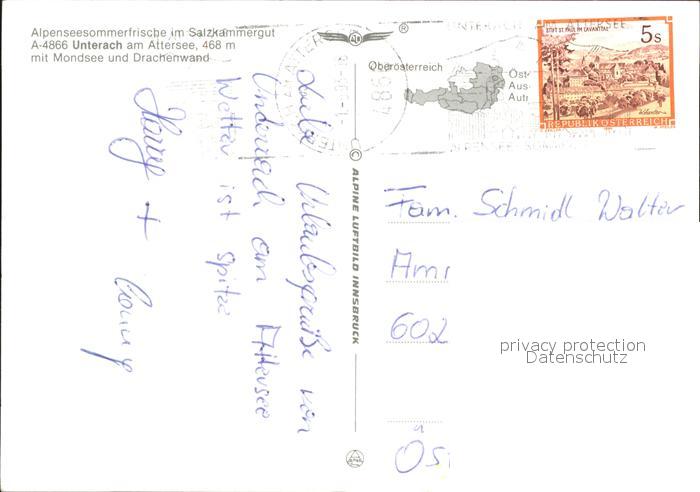 Alpenseesommerfrische im Salzkammergut
A-4866 Unterach am Attersee, 468 m
mit Mondsee und Drachenwand
®
Oberösterreich
Öst
Aus
Autr
UNTERACH AM ATTERSEE
4866
5s
STIFT ST. PAUL IM LAVANTTAL
REPUBLIK ÖSTERREICH
© ALPINE LUFTBILD INNSBRUCK
Liebe Urlaubsgrüße von
Unterach am Attersee
Wetter ist spitze
Harry +
Fam. Schmidl Walter
602
Ös
privacy protection
Datenschutz